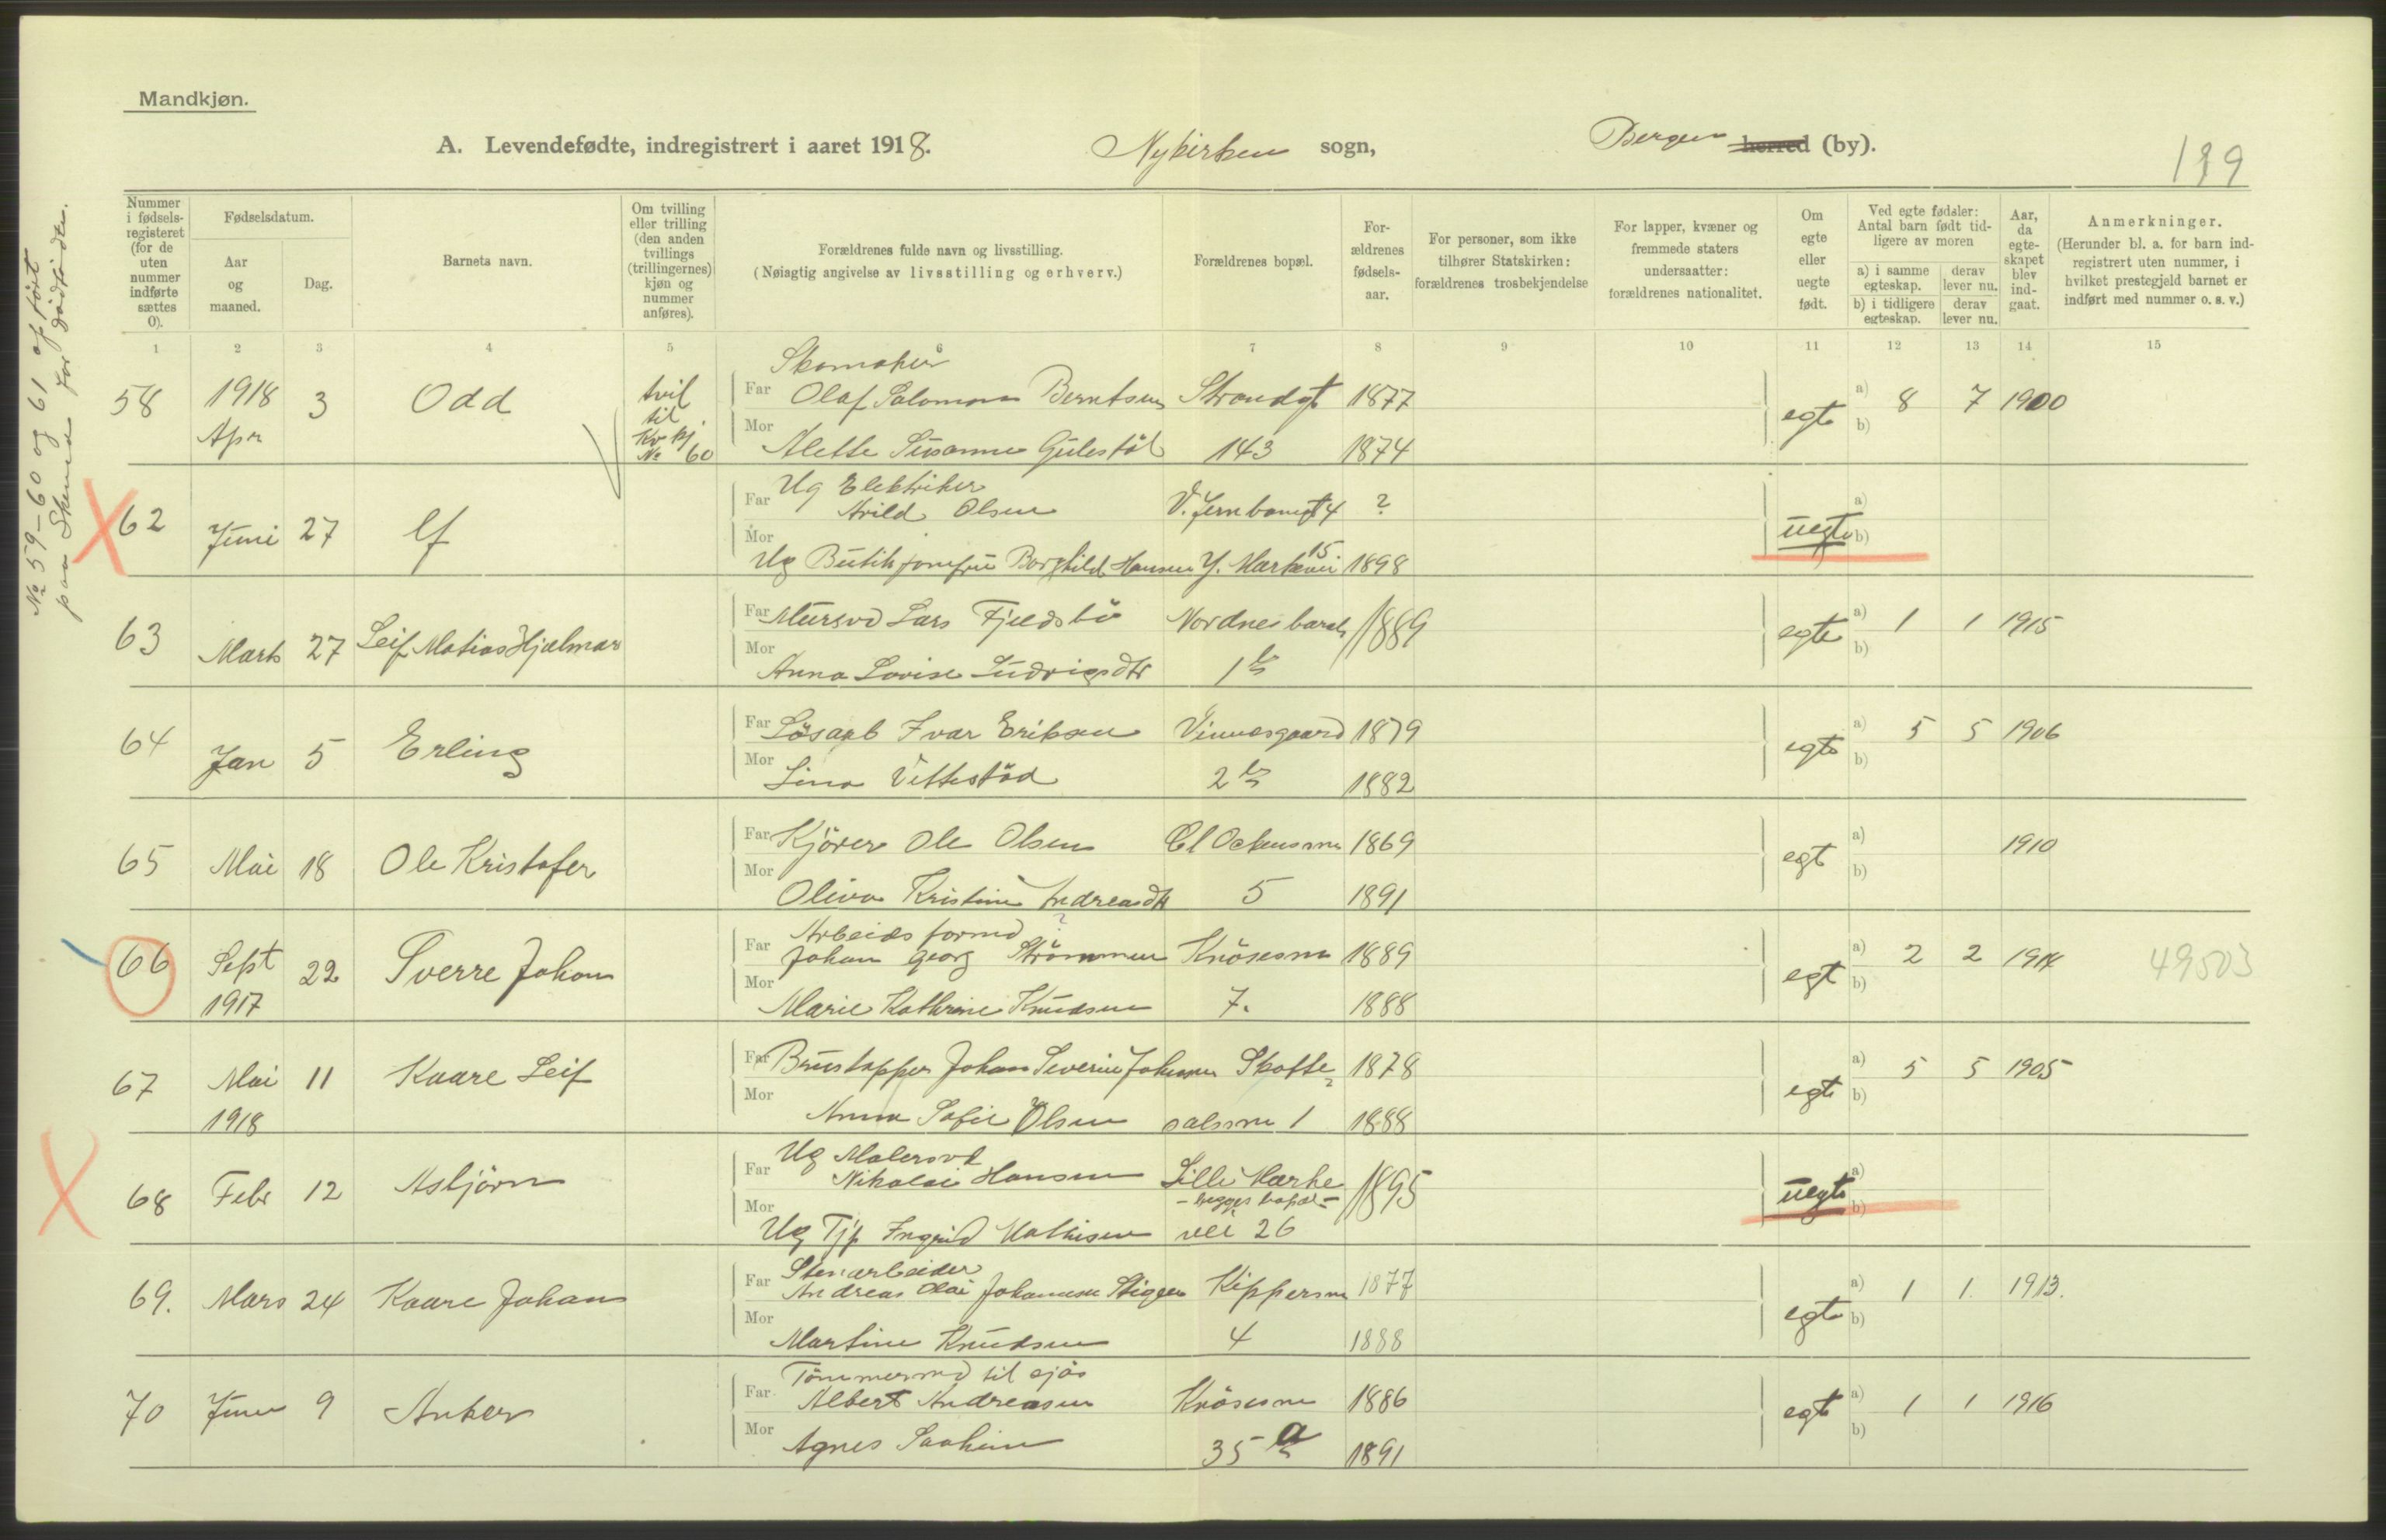 Mandkjøn.
A. Levendefødte, indregistrert i aaret 1918. Nykirken sogn, Bergen herred (by).
No 59-60 og 61 opført
paa Skema for dødfødte.
Nummer i fødsels-registeret (for de uten nummer indførte sættes 0).
Fødselsdatum.
Aar og maaned.
Dag.
Barnets navn.
Om tvilling eller trilling (den anden tvillings (trillingernes) kjøn og nummer anføres).
Forældrenes fulde navn og livsstilling.
(Nøiagtig angivelse av livsstilling og erhverv.)
Forældrenes bopæl.
For-ældrenes fødsels-aar.
For personer, som ikke tilhører Statskirken: forældrenes trosbekjendelse
For lapper, kvæner og fremmede staters undersaatter: forældrenes nationalitet.
Om egte eller uegte født.
Ved egte fødsler: Antal barn født tid-ligere av moren
a) i samme egteskap. derav lever nu.
b) i tidligere egteskap. derav lever nu.
Aar, da egte-skapet blev ind-gaat.
Anmerkninger.
(Herunder bl. a. for barn ind-registrert uten nummer, i hvilket prestegjeld barnet er indført med nummer o. s. v.)
1 2 3 4 5 6 7 8 9 10 11 12 13 14 15
Skomaker
58 1918 Apr 3 Odd tvil til Kv kj. No 60 Far Olaf Salomon Berntsen Strandgt 1877 egte a) 8 7 1900
Mor Alette Susanne Gulestøl 143 1874 b)
Ug Elektriker
62 Juni 27 Far Arild Olsen V. Jernbanegt 4 ? uegte a)
Mor Ug Butikjomfru Borghild Hansen Y. Markevei 15 1898 b)
63 Marts 27 Leif Matias Hjalmar Far Mursvd Lars Fjeldsbö Nordnesbarak 1889 egte a) 1 1 1915
Mor Anna Lovise Ludvigsdtr 1 b b)
64 Jan 5 Erling Far Løsarb Ivar Eriksen Vinnesgaard 1879 egte a) 5 5 1906
Mor Lina Vettestöd 2 b 1882 b)
65 Mai 18 Ole Kristofer Far Kjörer Ole Olsen Cl Ockenssm 1869 egt a) 1910
Mor Oliva Kristine Andreasdtr 5 1891 b)
Arbeidsformd
66 Sept 1917 22 Sverre Johan Far Johan Georg Strömmen Knösesm 1889 egt a) 2 2 1914 49503
Mor Marie Kathrine Knudsen 7. 1888 b)
67 Mai 1918 11 Kaare Leif Far Brustapper Johan Severin Johnsen Skotte 1878 egte a) 5 5 1905
Mor Anna Sofie Olsen salssm 1 1888 b)
Ug Malersvd
68 Febr 12 Asbjörn Far Nikolai Hansen Lille Marke 1895 uegte a)
- begges bopæl -
Mor Ug Tjp Ingrid Mathisen vei 26 b)
Stenarbeider
69. Mars 24 Kaare Johan Far Andreas Olai Johannesen Stigen Kippersm 1877 egte a) 1 1. 1913.
Mor Martine Knudsen 4 1888 b)
Tömmermd til sjös
70 Juni 9 Anker Far Albert Andreasen Knösesm 1886 egte a) 1 1 1916
Mor Agnes 35 a 1891 b)